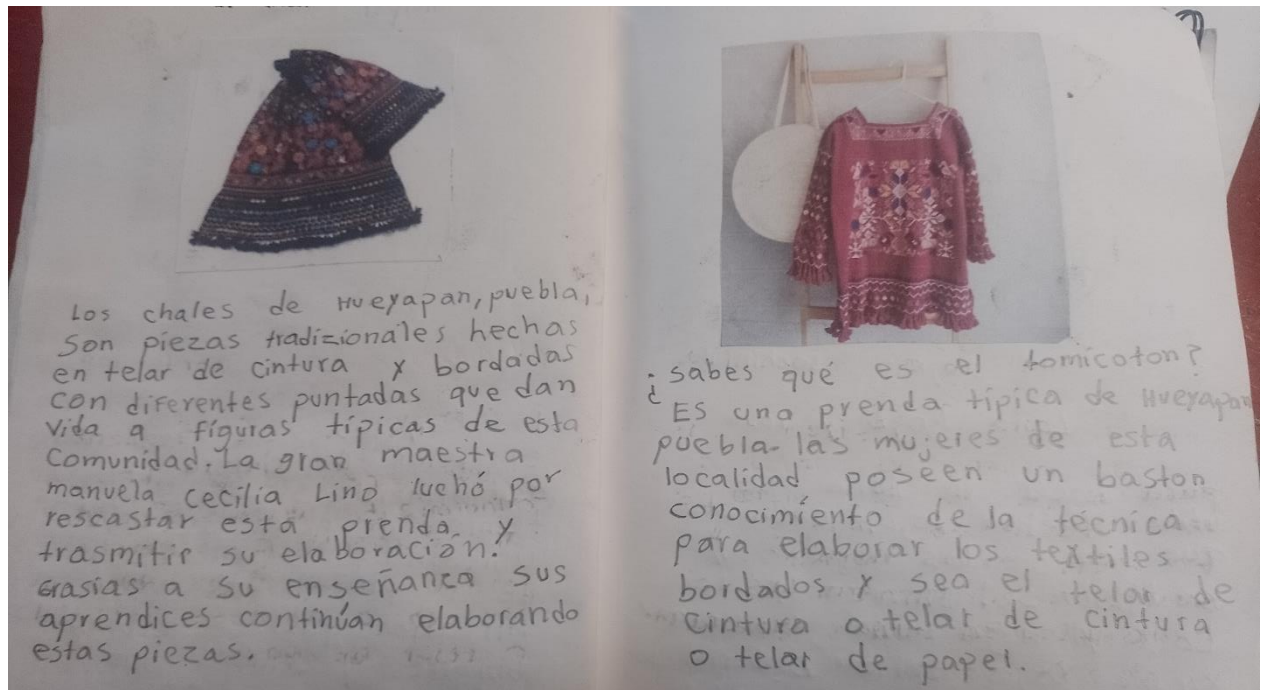 Los chales de Hueyapan, puebla,
son piezas tradizionales hechas
en telar de cintura y bordadas
con diferentes puntadas que dan
vida a fíguras típicas de esta
comunidad. La gran maestra
manuela cecilia Lino luchó por
rescastar está prenda y
trasmitir su elaboración.
Grasias a su enseñanca sus
aprendices continúan elaborando
estas piezas.
¿sabes qué es el tomicoton?
Es una prenda típica de Hueyapan
puebla. las mujeres de esta
localidad poseen un baston
conocimíento de la técnica
para elaborar los textiles
bordados y sea el telar de
cintura o telar de cintura
o telar de papel.